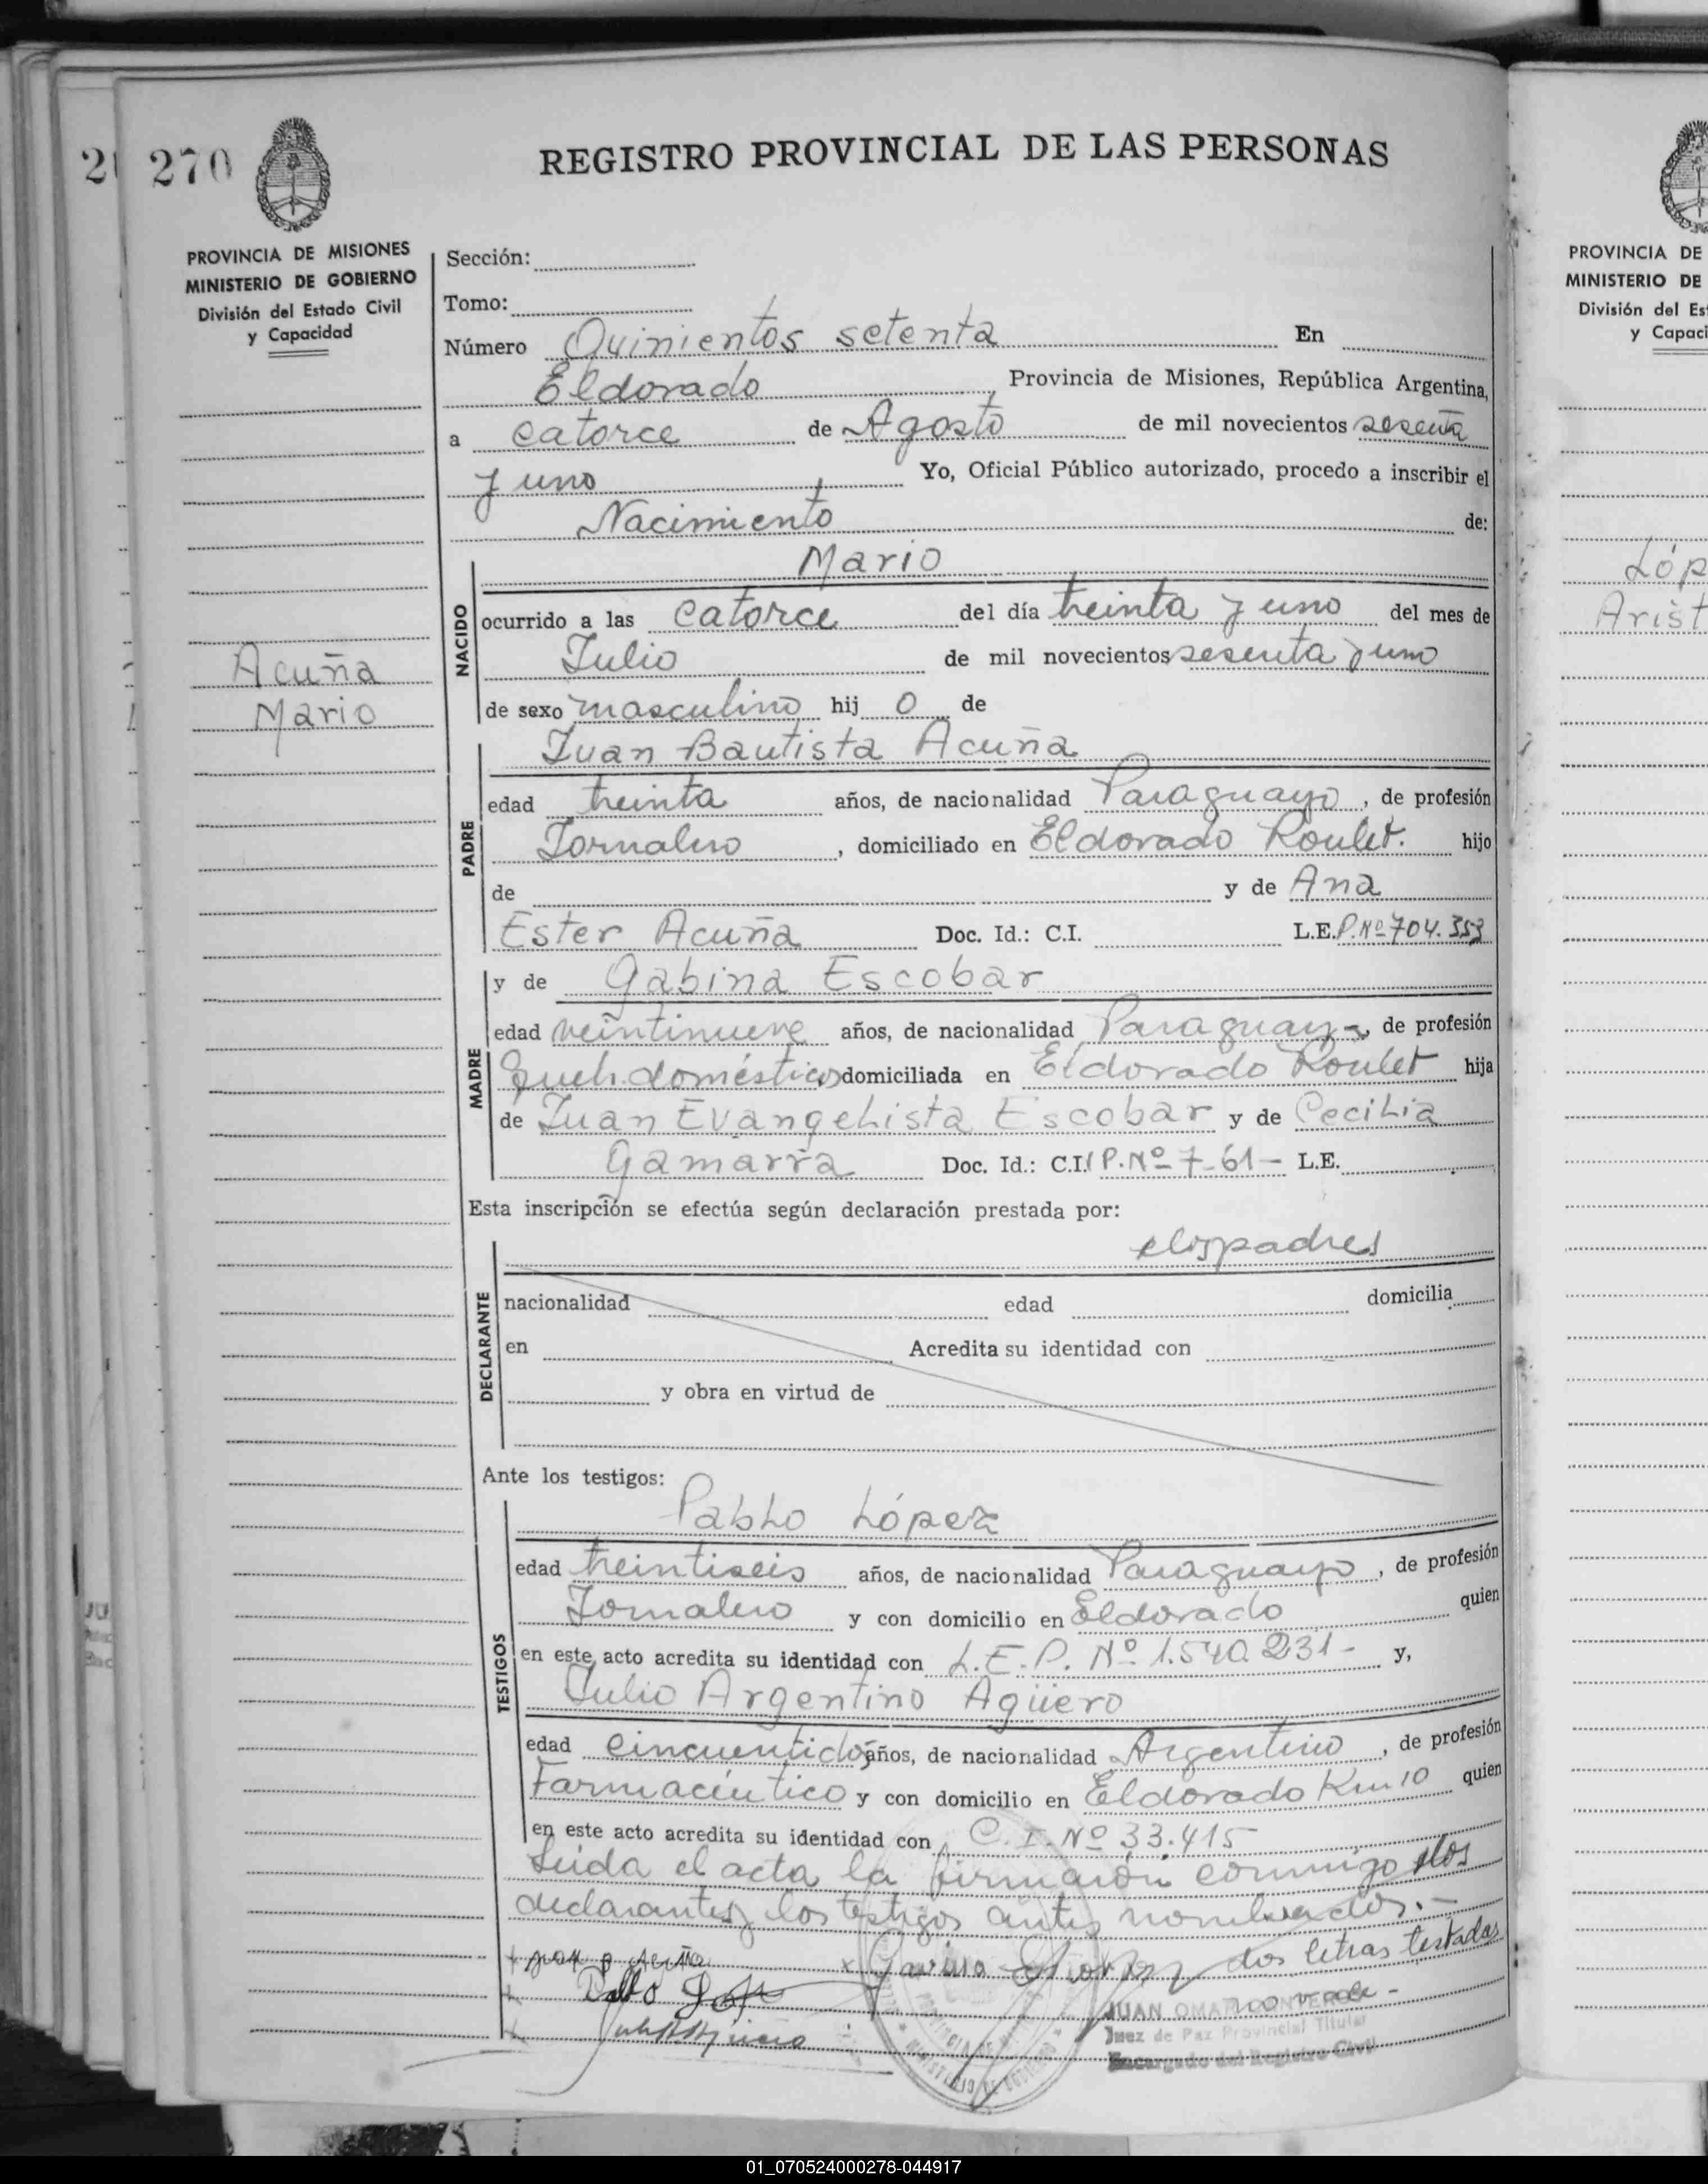 270
REGISTRO PROVINCIAL DE LAS PERSONAS
PROVINCIA DE MISIONES
MINISTERIO DE GOBIERNO
División del Estado Civil
y Capacidad
Acuña
Mario
Sección:
Tomo:
Número Quinientos setenta En
Eldorado Provincia de Misiones, República Argentina,
a catorce de Agosto de mil novecientos sesenta
y uno Yo, Oficial Público autorizado, procedo a inscribir el
Nacimiento de:
NACIDO
Mario
ocurrido a las catorce del día treinta y uno del mes de
Julio de mil novecientos sesenta y uno
de sexo masculino hij o de
PADRE
Juan Bautista Acuña
edad treinta años, de nacionalidad Paraguayo, de profesión
Jornalero, domiciliado en Eldorado Roulet. hijo
de y de Ana
Ester Acuña Doc. Id.: C.I. L.E. P.Nº 704.353
MADRE
y de Gabina Escobar
edad veintinueve años, de nacionalidad Paraguaya, de profesión
domésticos domiciliada en Eldorado Roulet hija
de Juan Evangelista Escobar y de Cecilia
Gamarra Doc. Id.: C.I. P.Nº 7-61- L.E.
Esta inscripción se efectúa según declaración prestada por:
DECLARANTE
padres
nacionalidad edad domicilia
en Acredita su identidad con
y obra en virtud de
Ante los testigos:
TESTIGOS
Pablo López
edad treintiseis años, de nacionalidad Paraguayo, de profesión
Jornalero y con domicilio en Eldorado quien
en este acto acredita su identidad con L.E.P. Nº 1.540.231- y,
Julio Argentino Agüero
edad cincuentidós años, de nacionalidad Argentino, de profesión
Farmacéutico y con domicilio en Eldorado Km 10 quien
en este acto acredita su identidad con C.I. Nº 33.415
Leida el acta la firmaron conmigo los
declarantes y los testigos antes nombrados.-
dos letras testadas
no vale -
JUAN OMAR
Juez de Paz Provincial Titular
Encargado del Registro Civil
PROVINCIA DE
MINISTERIO DE
División del Es
y Capaci
Lóp
Arist
01_070524000278-044917